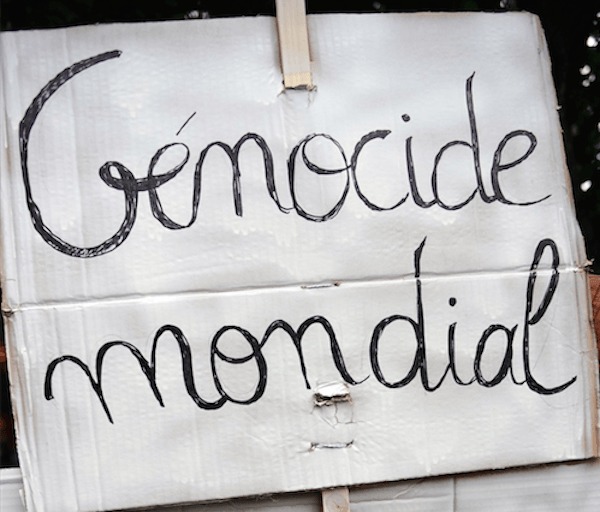 Génocide
mondial